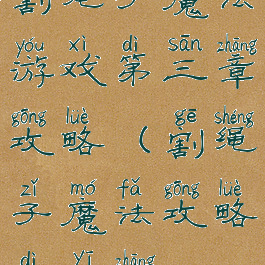 割 魔 法
yóu xì dì sān zhāng
游 戏 第 三 章
gōng lüè gē shéng
攻 略 ( 割 绳
zǐ mó fǎ gōng lüè
子 魔 法 攻 略
dì yī zhāng